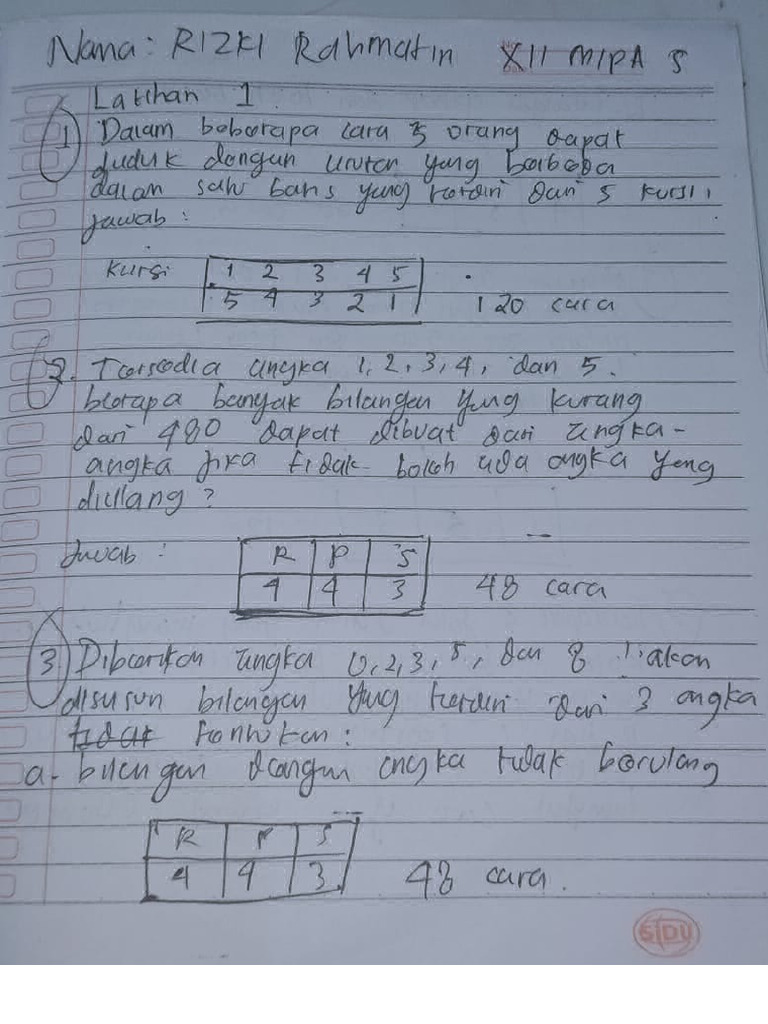 Nama: RIZKI Rahmatin XII MIPA 5
Latihan 1
1 Dalam beberapa cara 5 orang dapat
duduk dengan urutan yang berbeda
dalam satu baris yang terdiri dari 5 kursi,
Jawab:
kursi 1 2 3 4 5
5 4 3 2 1 120 cara
2. Tersedia angka 1, 2, 3, 4, dan 5.
berapa banyak bilangan yang kurang
dari 480 dapat dibuat dari angka-
angka jika tidak boleh ada angka yang
diulang?
Jawab: R P S
4 4 3 48 cara
3 Diberikan angka 0, 2, 3, 5, dan 8 akan
disusun bilangan yang terdiri dari 3 angka
tentukan:
a. bilangan dengan angka tidak berulang
R P S
4 4 3 48 cara.
SIDU